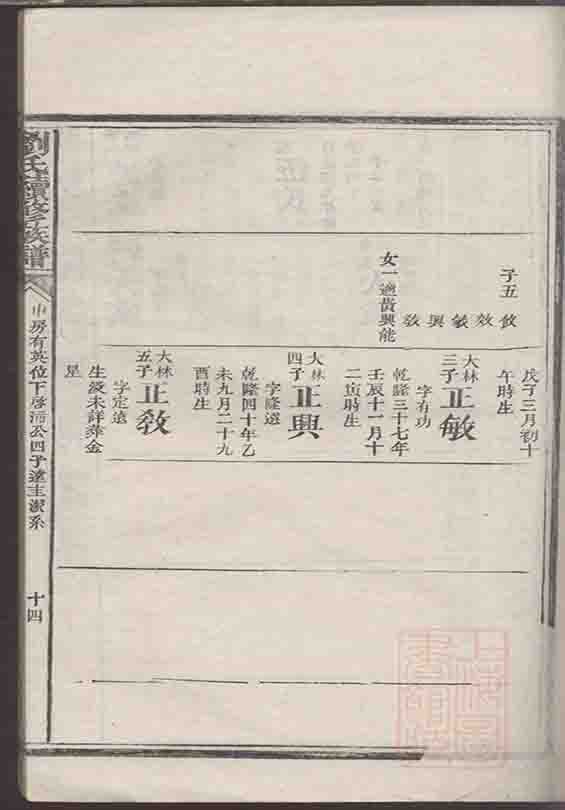 子五 攸
效
敏
興
敎
女一適黃興能
戊子三月初十
午時生
大林
三子
正敏
字有功
乾隆三十七年
壬辰十一月十
二寅時生
大林
四子
正興
字隆遠
乾隆四十年乙
未九月二十九
酉時生
大林
五子
正敎
字定遠
生歿未詳葬金
星
劉氏續修族譜
申房有英位下
公四子遠主派系
十四